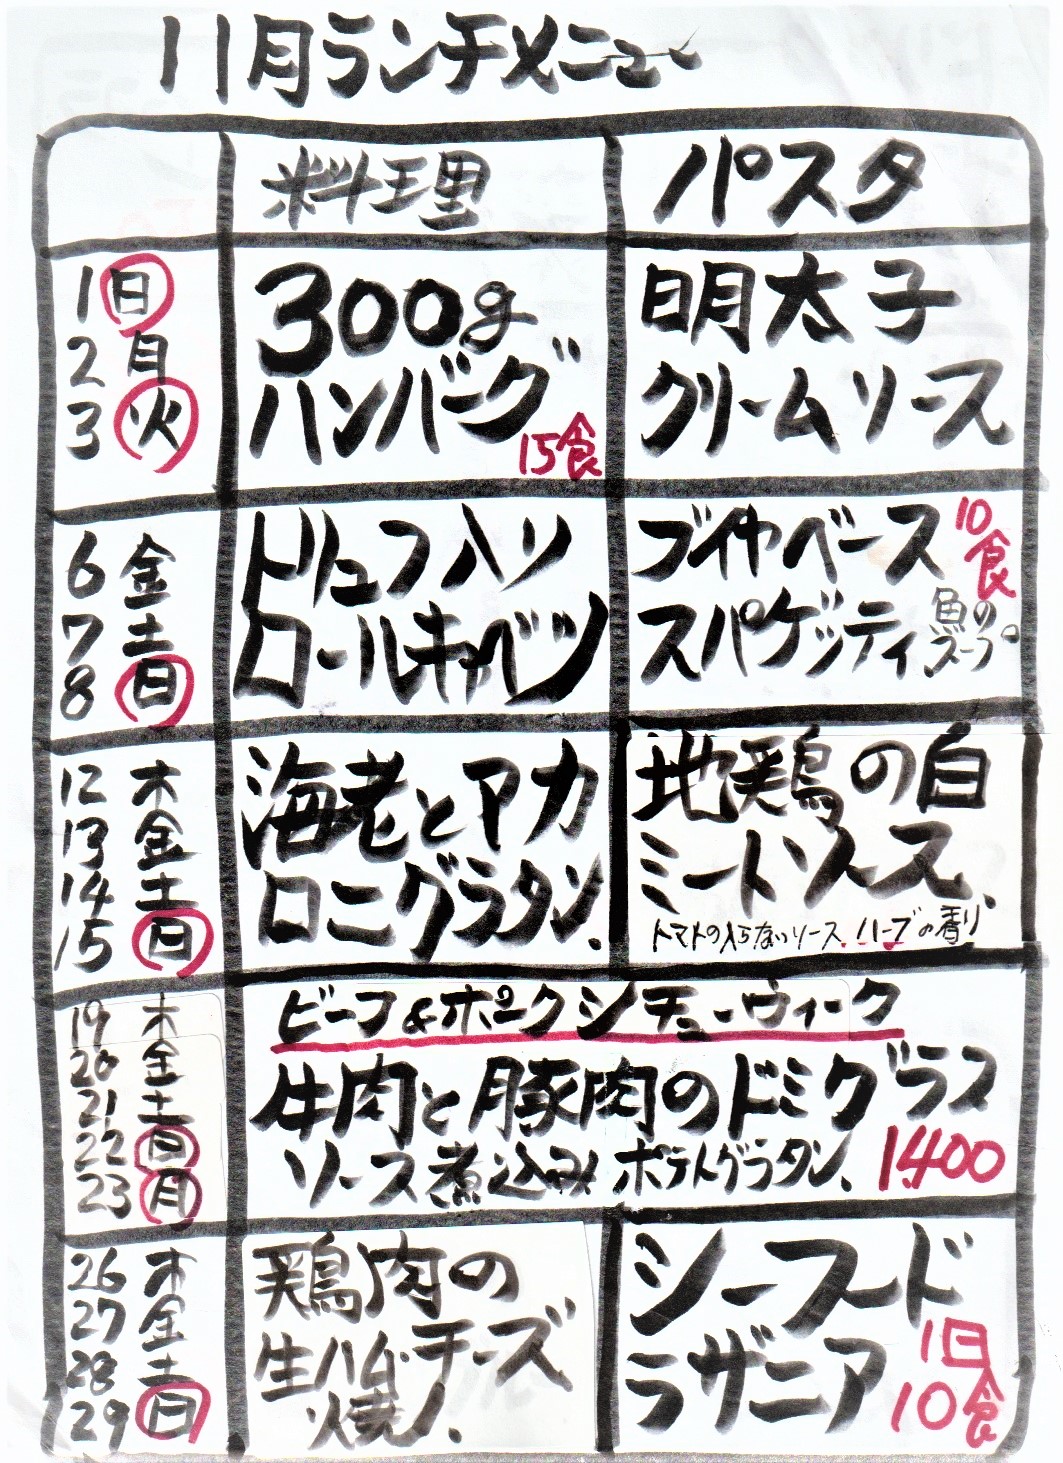 11月ランチメニュー
料理
パスタ
1日
2月
3火
300g
ハンバーグ
15食
明太子
クリームソース
6金
7土
8日
トリュフ入り
ロールキャベツ
ブイヤベース
10食
スパゲッティ
魚の
スープ
12木
13金
14土
15日
海老とマカ
ロニグラタン、
地鶏の白
ミートソース、
トマトの入らないソース ハーブの香り
19木
20金
21土
22日
23月
ビーフ&ポークシチューウィーク
牛肉と豚肉のドミグラス
ソース煮込み ポテトグラタン、
1,400
26木
27金
28土
29日
鶏肉の
生ハム、チーズ
焼、
シーフード
ラザニア
1日
10食